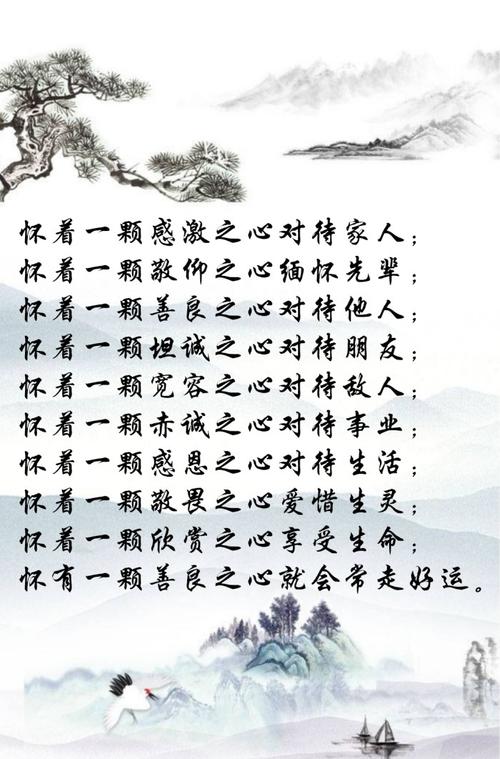 怀着一颗感激之心对待家人；
怀着一颗敬仰之心缅怀先辈；
怀着一颗善良之心对待他人；
怀着一颗坦诚之心对待朋友；
怀着一颗宽容之心对待敌人；
怀着一颗赤诚之心对待事业；
怀着一颗感恩之心对待生活；
怀着一颗敬畏之心爱惜生灵；
怀着一颗欣赏之心享受生命；
怀有一颗善良之心就会常走好运。